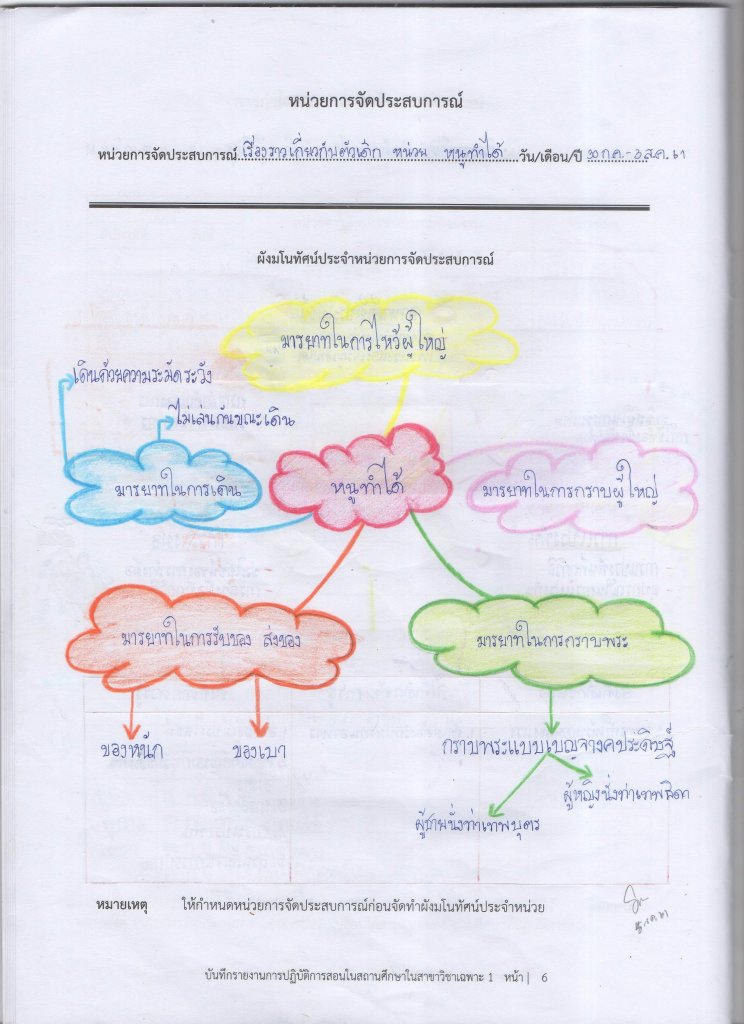 หน่วยการจัดประสบการณ์
หน่วยการจัดประสบการณ์ เรื่องราวเกี่ยวกับตัวเด็ก หน่วย หนูทำได้ วัน/เดือน/ปี 30 ก.ค.-3 ส.ค. 61
ผังมโนทัศน์ประจำหน่วยการจัดประสบการณ์
มารยาทในการไหว้ผู้ใหญ่
เดินด้วยความระมัดระวัง
ไม่เล่นกันขณะเดิน
มารยาทในการเดิน
หนูทำได้
มารยาทในการกราบผู้ใหญ่
มารยาทในการรับของ ส่งของ
มารยาทในการกราบพระ
ของหนัก
ของเบา
กราบพระแบบเบญจางคประดิษฐ์
ผู้หญิงนั่งท่าเทพธิดา
ผู้ชายนั่งท่าเทพบุตร
หมายเหตุ ให้กำหนดหน่วยการจัดประสบการณ์ก่อนจัดทำผังมโนทัศน์ประจำหน่วย
บันทึกรายงานการปฏิบัติการสอนในสถานศึกษาในสาขาวิชาเฉพาะ 1 หน้า | 6